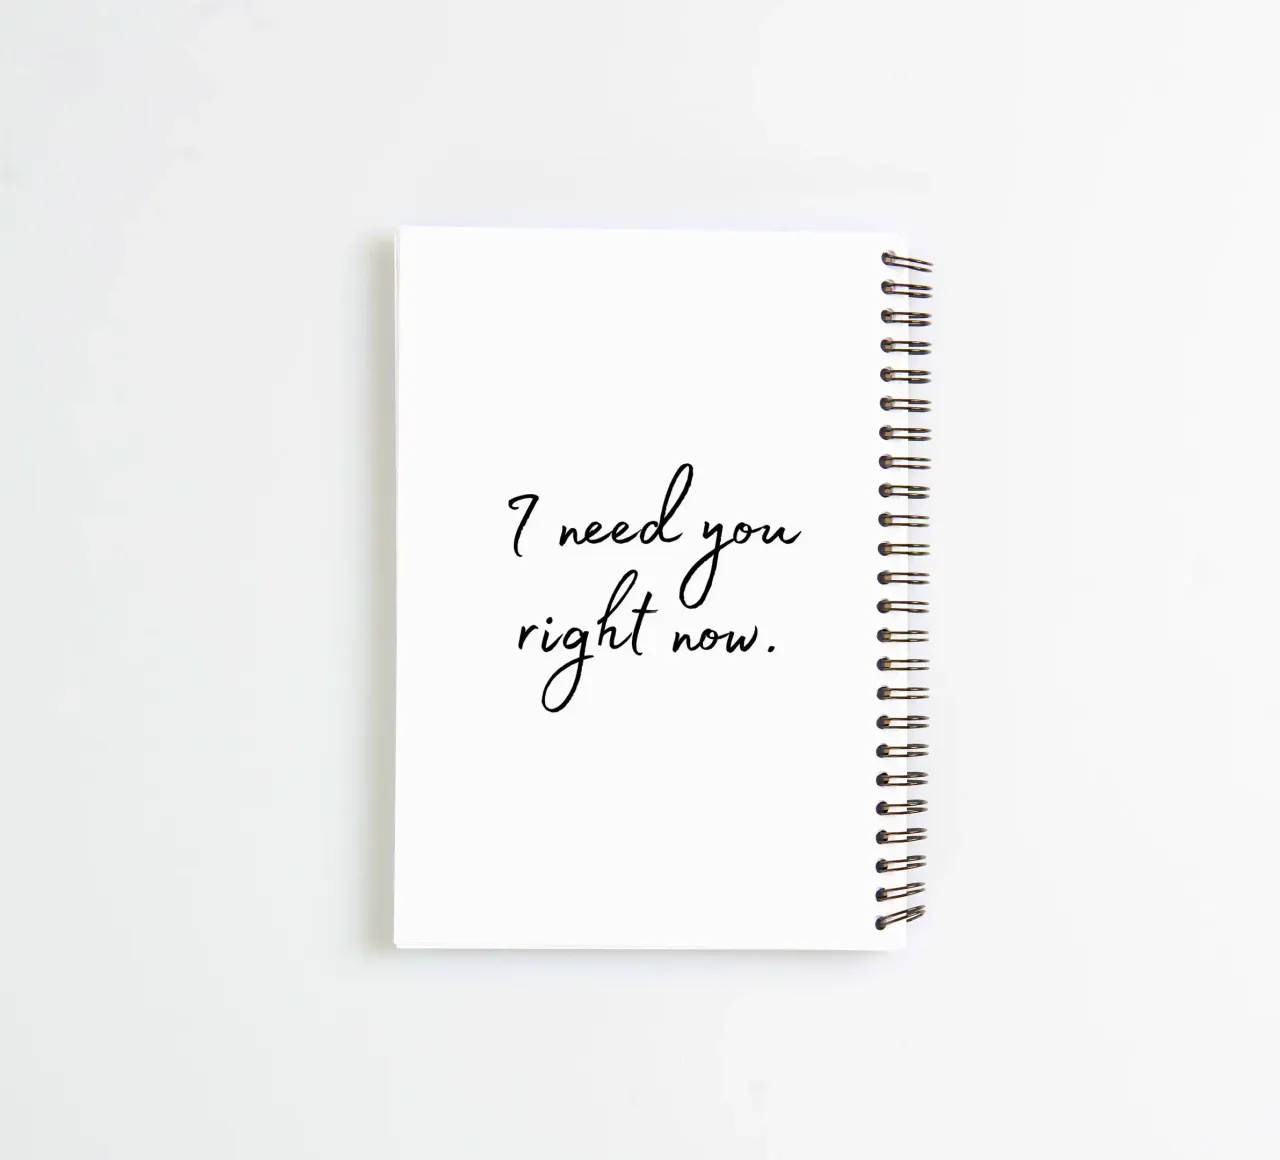 I need you
right now.